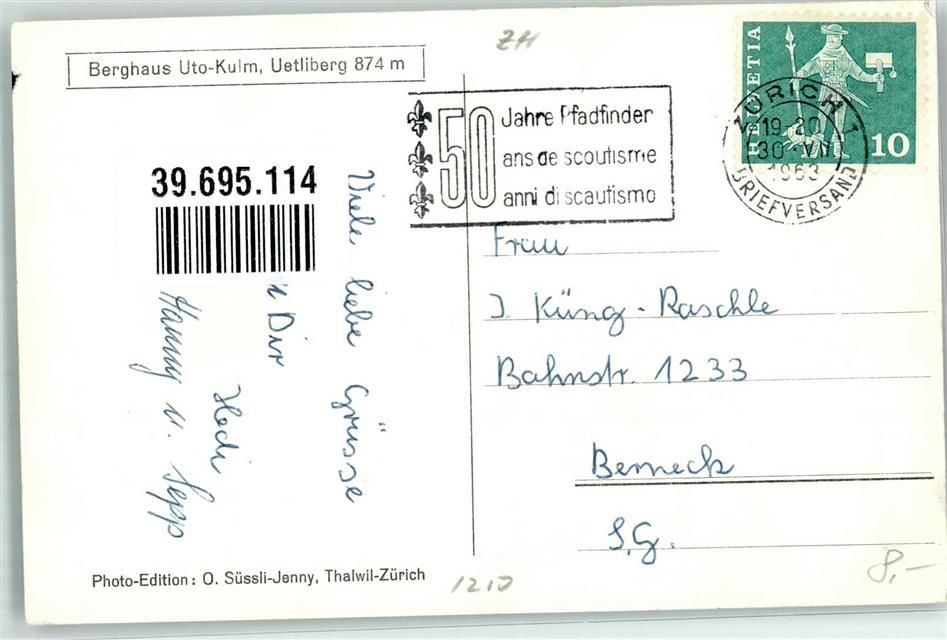 ZH
Berghaus Uto-Kulm, Uetliberg 874 m
HELVETIA
10
ZÜRICH 1
19-20
30.VII
1963
BRIEFVERSAND
50
Jahre Pfadfinder
ans de scoutisme
anni di scautismo
39.695.114
Viele liebe Grüsse
Dir
Hedi
Hanny u. Sepp
Frau
J. Küng-Raschle
Bahnstr. 1233
Berneck
S.G.
Photo-Edition: O. Süssli-Jenny, Thalwil-Zürich
1210
8,-